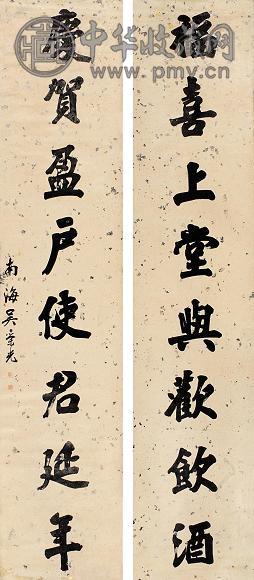 福喜上堂與歡飲酒
慶賀盈戶使君延年
南海吴榮光
中华收藏网
www.pmv.cn